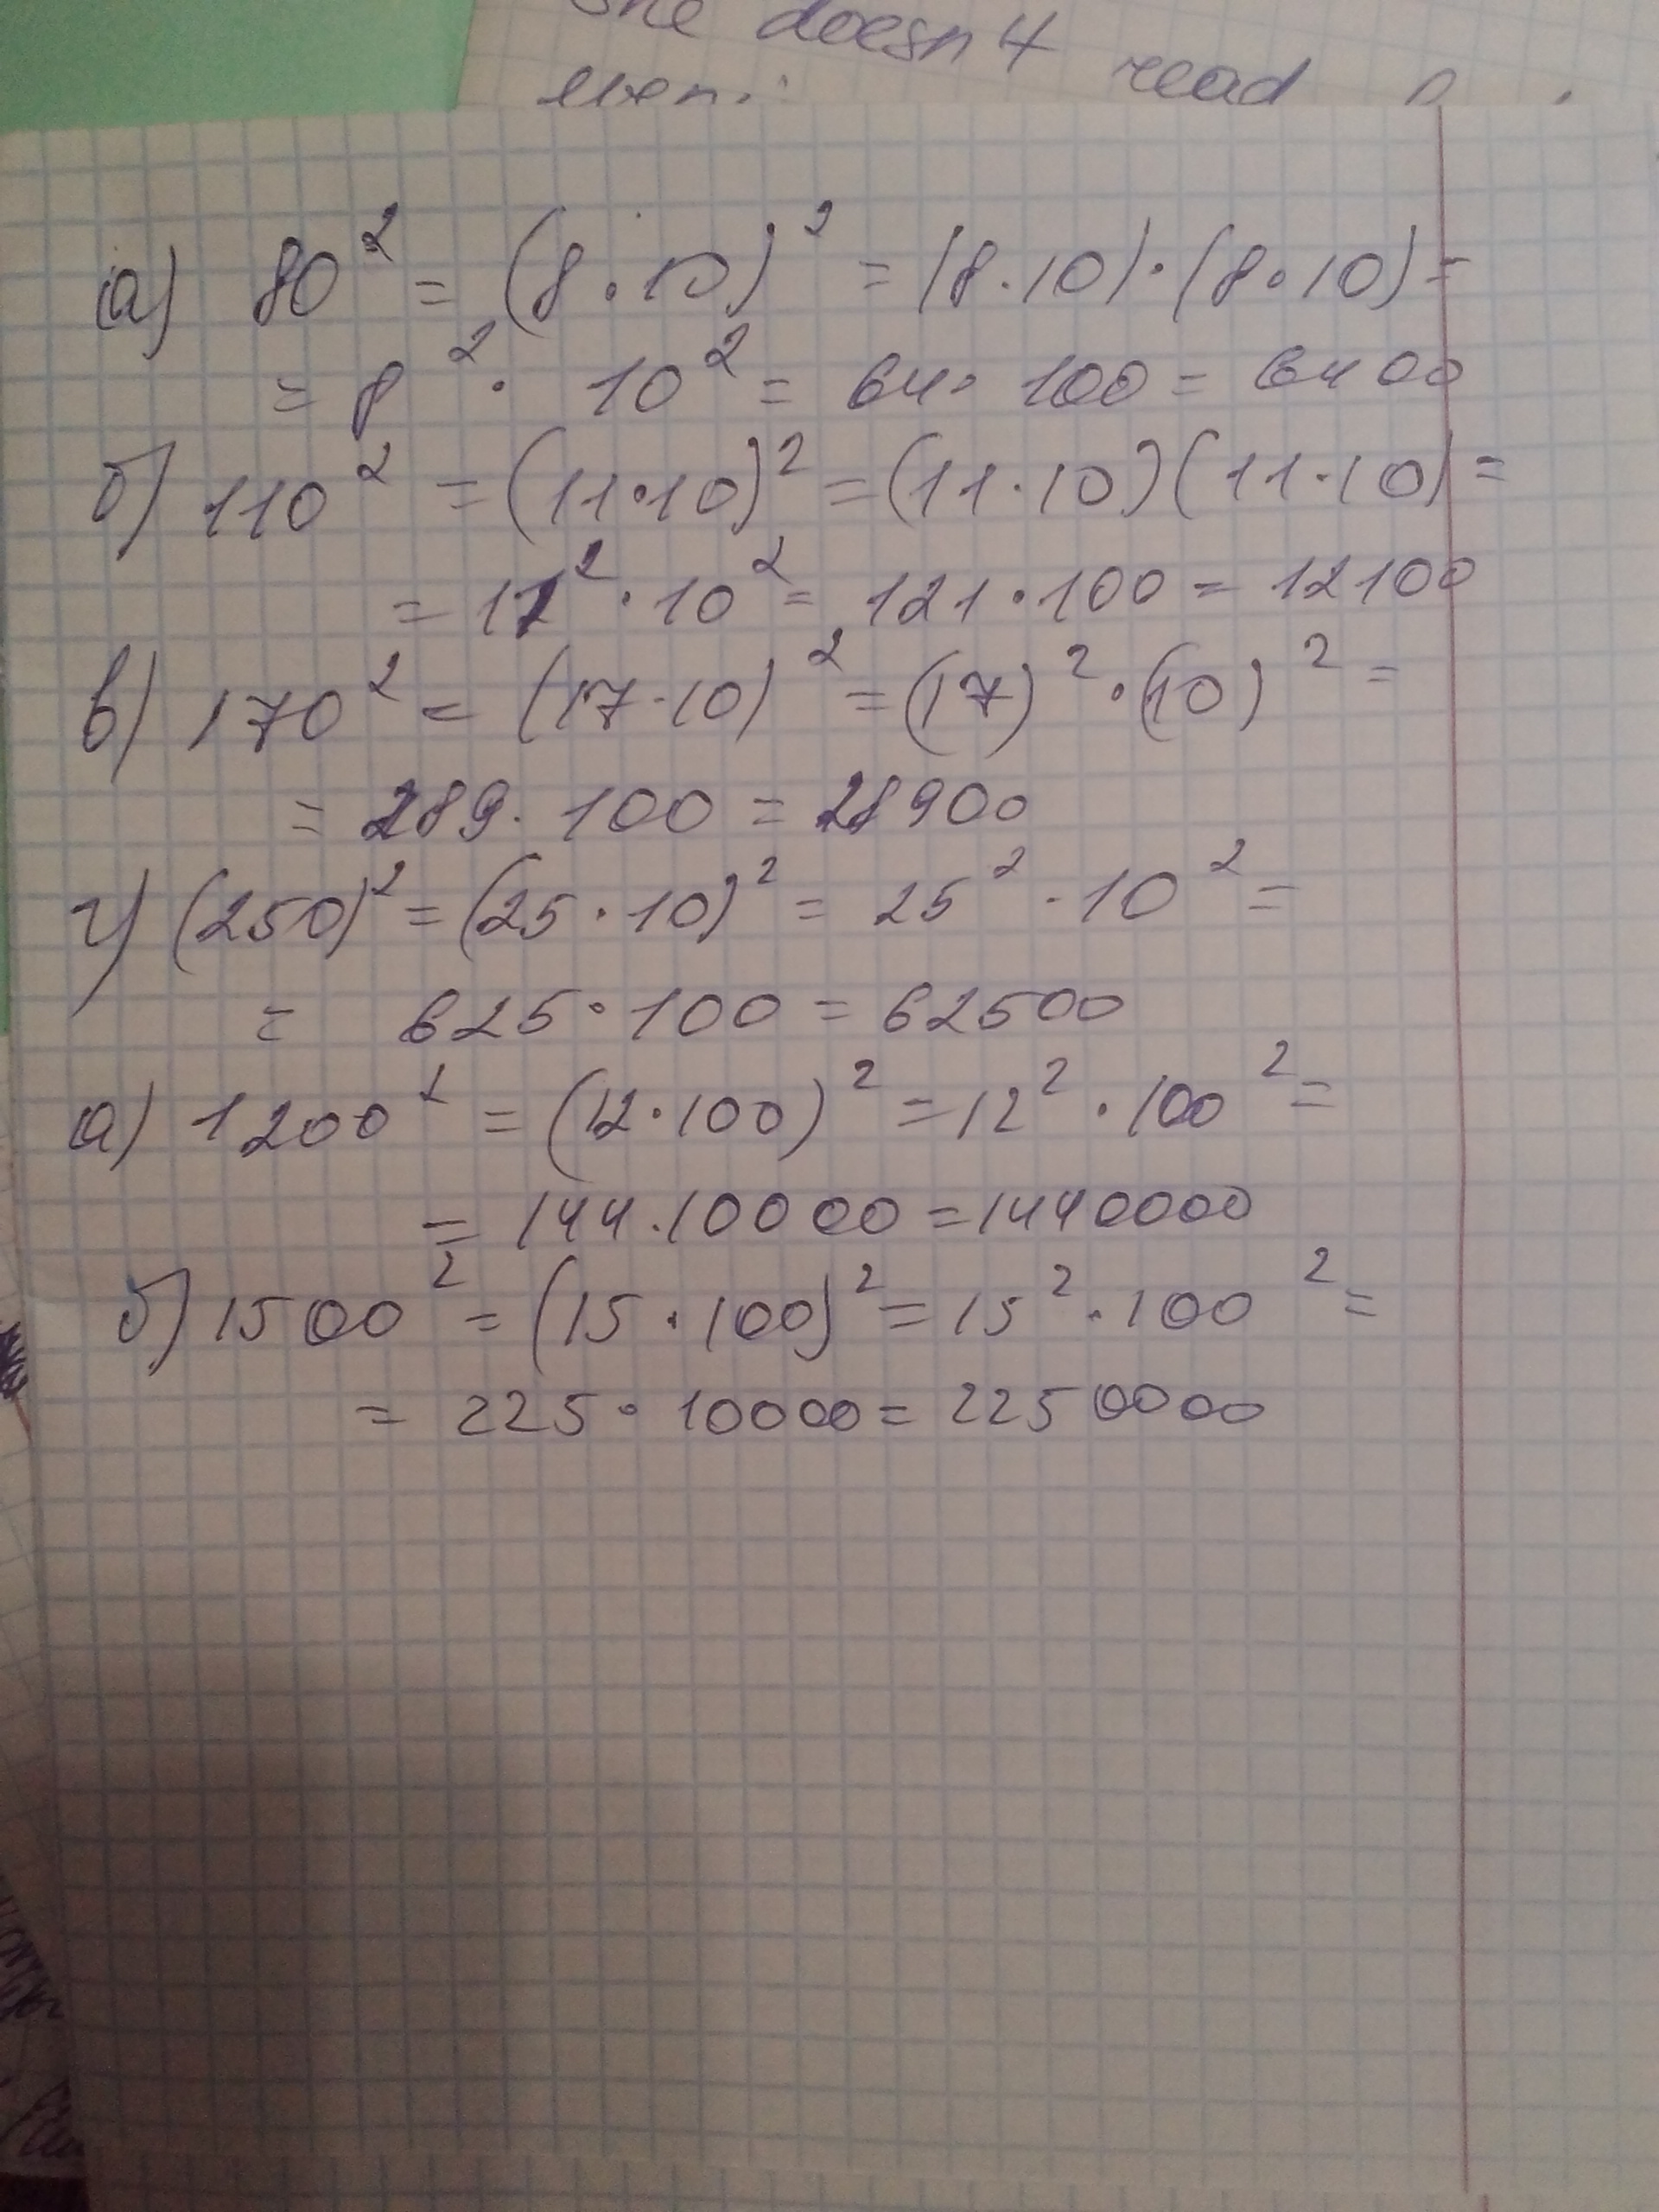 She doesn4 read
а) 80² = (8·10)² = (8·10)·(8·10) =
= 8²· 10² = 64· 100 = 6400
б) 110² = (11·10)² = (11·10)(11·10) =
= 11²·10² = 121·100 = 12100
в) 170² = (17·10)² = (17)²·(10)² =
= 289·100 = 28900
г) (250)² = (25·10)² = 25²·10² =
= 625·100 = 62500
а) 1200² = (12·100)² = 12²·100² =
= 144·10000 = 1440000
б) 1500² = (15·100)² = 15²·100² =
= 225·10000 = 2250000